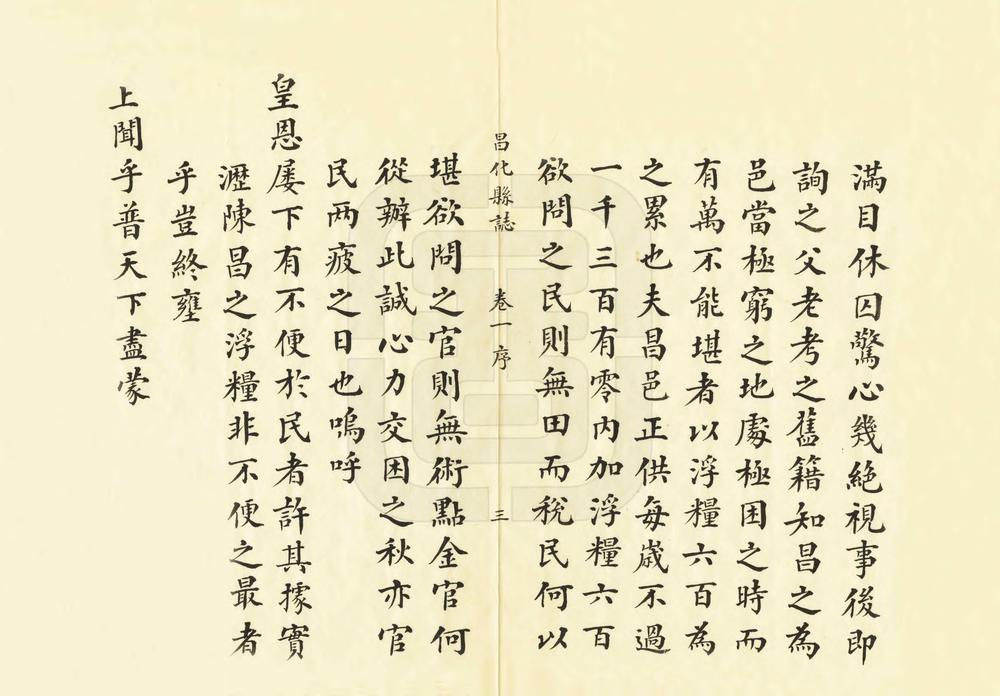 滿目休囚驚心幾絕視事後即
詢之父老考之舊籍知昌之為
邑當極窮之地處極困之時而
有萬不能堪者以浮糧六百為
之累也夫昌邑正供每歲不過
一千三百有零內加浮糧六百
欲問之民則無田而稅民何以
昌化縣誌 卷一序 三
堪欲問之官則無術點金官何
從辦此誠心力交困之秋亦官
民两疲之日也嗚呼
皇恩屡下有不便於民者許其據實
瀝陳昌之浮糧非不便之最者
乎豈終壅
上聞乎普天下盡蒙